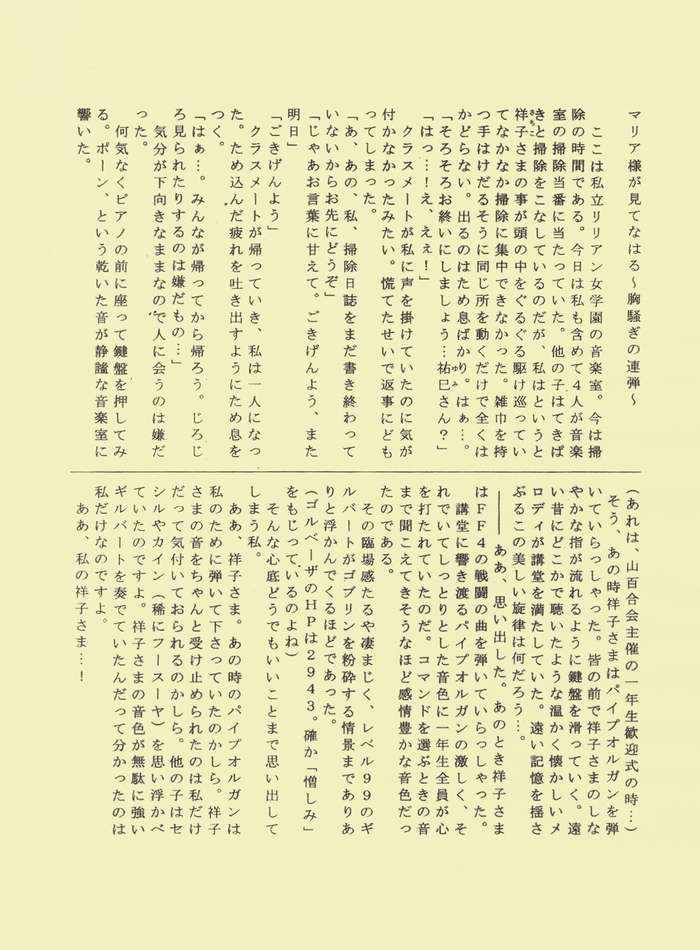 マリア様が見てなはる～胸騒ぎの連弾～
ここは私立リリアン女学園の音楽室。今は掃
除の時間である。今日は私も含めて４人が音楽
室の掃除当番に当たっていた。他の子はてきぱ
きと掃除をこなしているのだが、私はというと
祥子さまの事が頭の中をぐるぐる駆け巡ってい
てなかなか掃除に集中できなかった。雑巾を持
つ手はけだるそうに同じ所を動くだけで全くは
かどらない。出るのはため息ばかり。はぁ…。
「そろそろお終いにしましょう…祐巳さん？」
「はっ…！え、えぇ！」
クラスメートが私に声を掛けていたのに気が
付かなかったみたい。慌てたせいで返事にども
ってしまった。
「あ、あの、私、掃除日誌をまだ書き終わって
いないからお先にどうぞ」
「じゃあお言葉に甘えて。ごきげんよう、また
明日」
「ごきげんよう」
クラスメートが帰っていき、私は一人になっ
た。ため込んだ疲れを吐き出すようにため息を
つく。
「はぁ…。みんなが帰ってから帰ろう。じろじ
ろ見られたりするのは嫌だもの…」
気分が下向きなままなので、人に会うのは嫌だ
った。
何気なくピアノの前に座って鍵盤を押してみ
る。ポーン、という乾いた音が静謐な音楽室に
響いた。
（あれは、山百合会主催の一年生歓迎式の時…）
そう、あの時祥子さまはパイプオルガンを弾
いていらっしゃった。皆の前で祥子さまのしな
やかな指が流れるように鍵盤を滑っていく。遠
い昔にどこかで聴いたような温かく懐かしいメ
ロディが講堂を満たしていた。遠い記憶を揺さ
ぶるこの美しい旋律は何だろう…。
――ああ、思い出した。あのとき祥子さま
はＦＦ４の戦闘の曲を弾いていらっしゃった。
講堂に響き渡るパイプオルガンの激しく、そ
れでいてしっとりとした音色に一年生全員が心
を打たれていたのだ。コマンドを選ぶときの音
まで聞こえてきそうなほど感情豊かな音色だっ
たのである。
その臨場感たるや凄まじく、レベル９９のギ
ルバートがゴブリンを粉砕する情景までありあ
りと浮かんでくるほどであった。
（ゴルベーザのＨＰは２９４３。確か「憎しみ」
をもじっているのよね）
そんな心底どうでもいいことまで思い出して
しまう私。
ああ、祥子さま。あの時のパイプオルガンは
私のために弾いて下さっていたのかしら。祥子
さまの音をちゃんと受け止められたのは私だけ
だって気付いておられるのかしら。他の子はセ
シルやカイン（稀にフースーヤ）を思い浮かべ
ていたのですよ。祥子さまの音色が無駄に強い
ギルバートを奏でていたんだって分かったのは
私だけなのですよ。
ああ、私の祥子さま…！